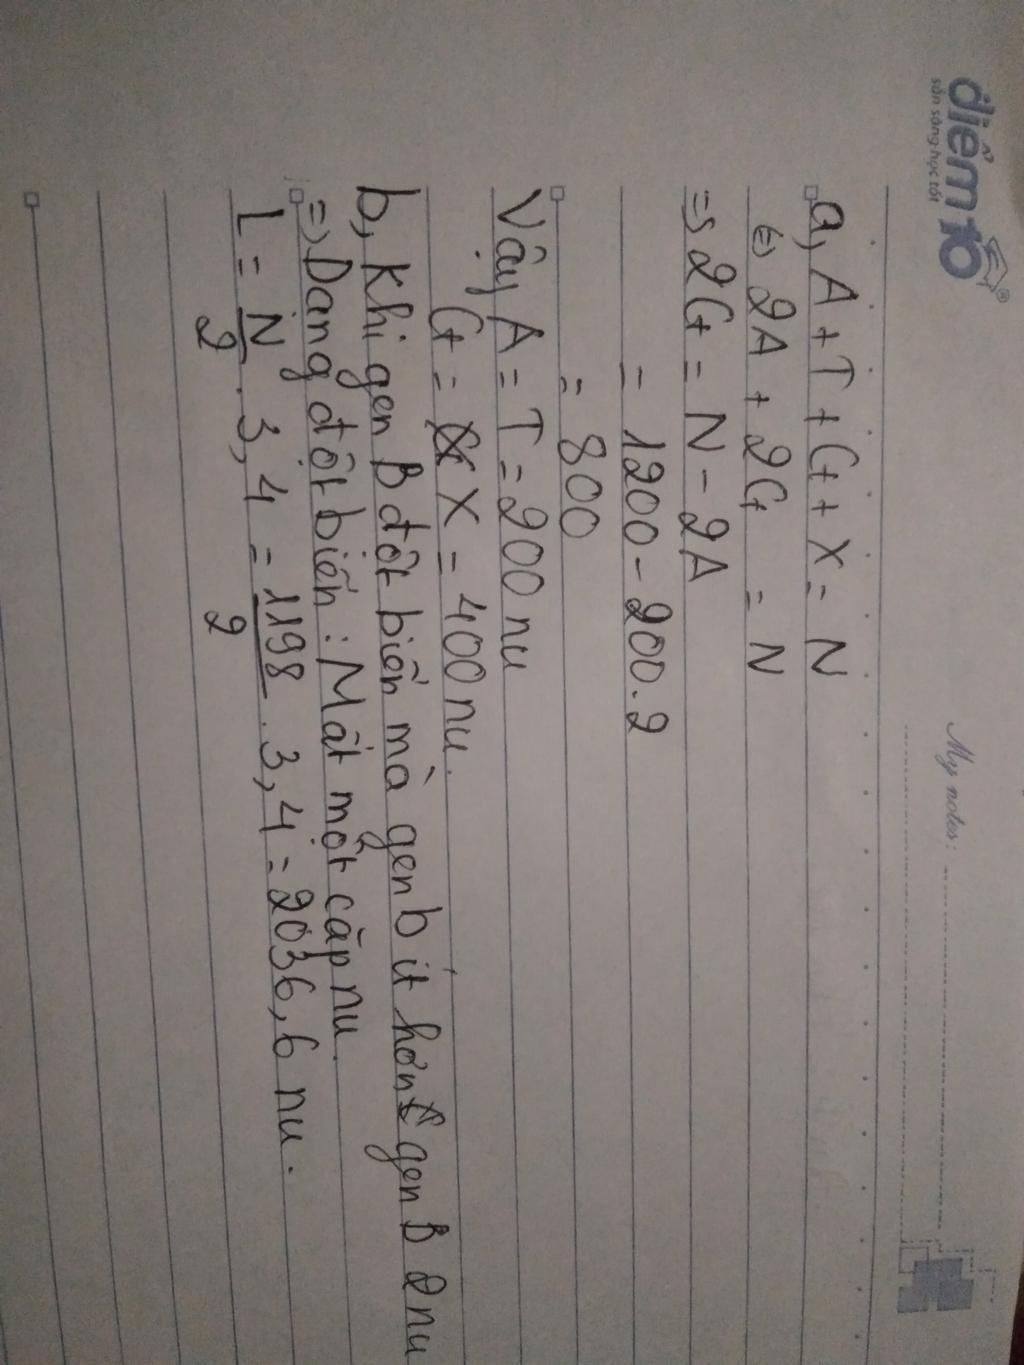 điểm10
sẵn sàng học tốt
My notes:
a, A + T + G + X = N
(=) 2A + 2G = N
=> 2G = N - 2A
= 1200 - 200.2
= 800
Vậy A = T = 200 nu
G = X = 400 nu.
b, Khi gen B đột biến mà gen b ít hơn gen B 2 nu
=> Dạng đột biến : Mất một cặp nu.
L = N/2 . 3,4 = 1198/2 . 3,4 = 2036,6 nu.